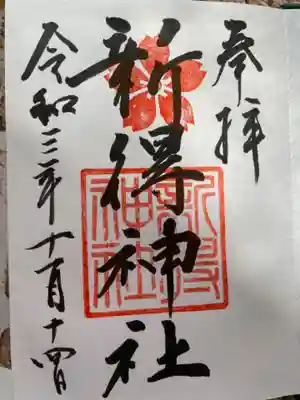 奉拝
新得神社
新得
神社
令和三年十一月十四日